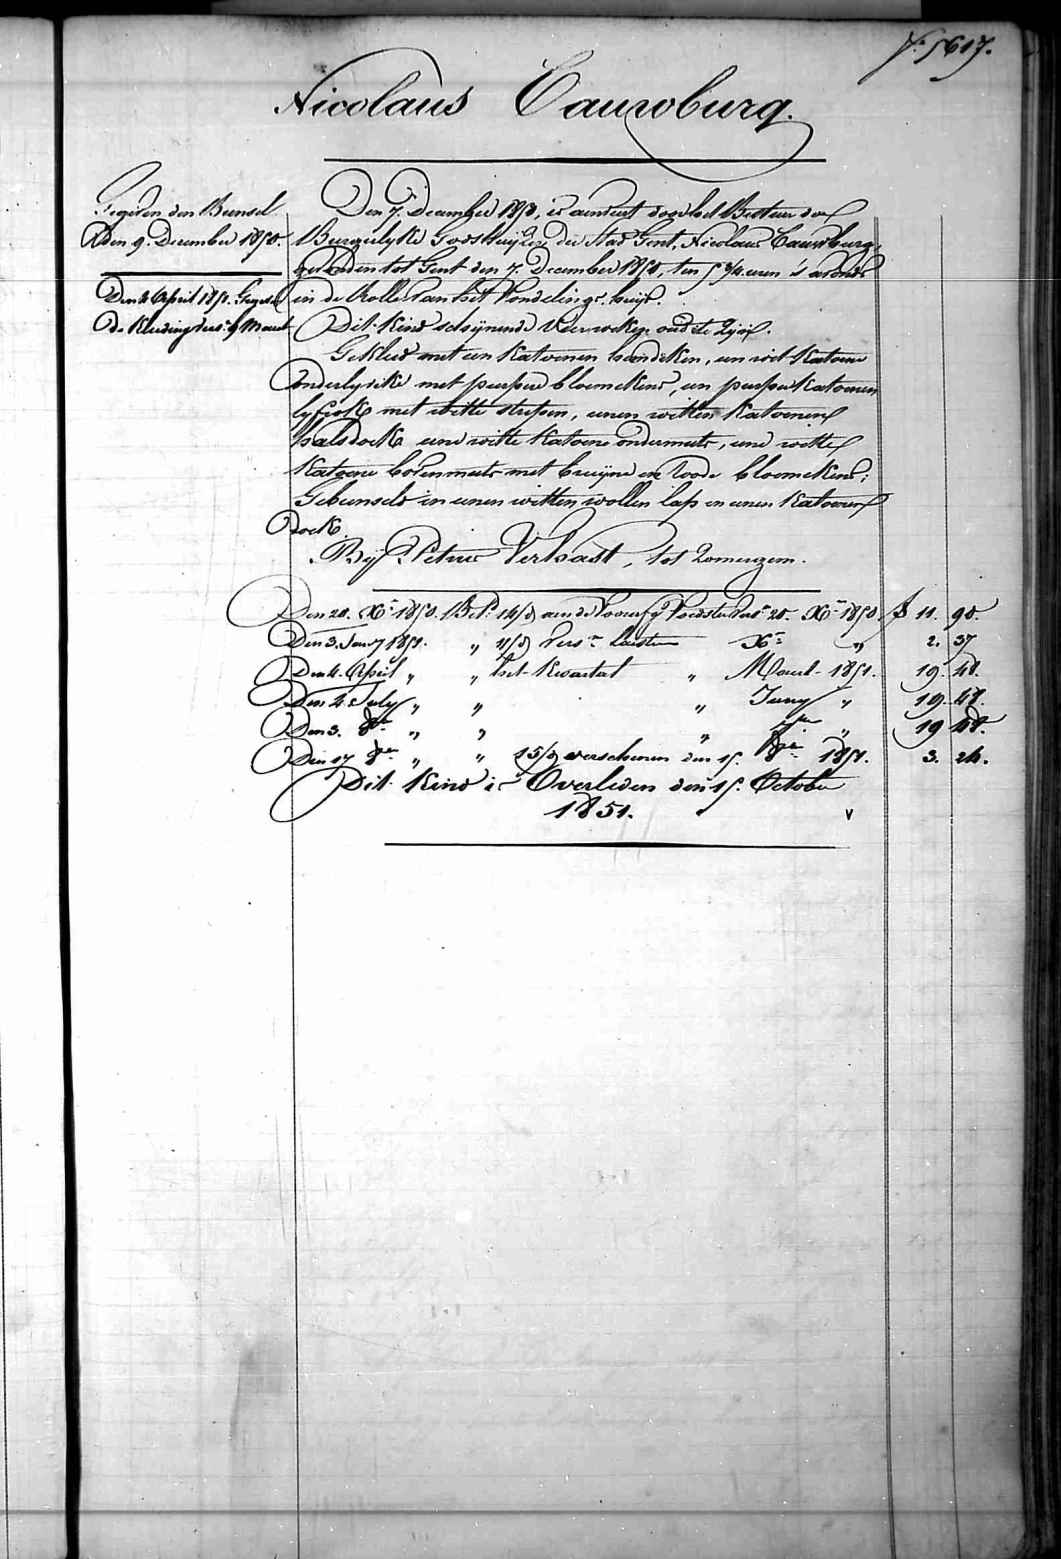 N.º 5617.
Nicolaüs Cauwburg.
Gegeven den Bunsel
den 9. December 1850.
Den 4 April 1851. Gegeven
de Kleeding vers. 9 Maend
Den 7. December 1850, is aenveert door het Bestuer der
Burgerlyke Godshuijzen der Stad Gent, Nicolaus Cauwburg,
gevonden tot Gent den 7. December 1850, ten 5 3/4 uren 's avonds
in de Rolle van het Vondelings-huijs.
Dit Kind schijnende vier weken oud te zijn.
Gekleed met een Katoenen hemdeken, een wit Katoene
onderlyveke met purpere bloemekens, een purper Katoenen
lyfrok met witte strepen, eenen witten Katoenen
halsdoek eene witte Katoene ondermuts, eene witte
Katoene bovenmuts met bruijne en roode bloemekens;
Gebunseld in eenen witten wollen lap en eenen Katoenen
doek
Bij Petrus Verhast, tot Zomergem.
Den 20. Xº 1850. Bet. 14/d aen de Voorsz. Voedster vers. 20. Xº 1850. f 11. 90.
Den 3. Janry 1851. " 11/d vers. laesten Xº " 2. 37
Den 4. April " " het Kwartael " Maert 1851. 19. 48.
Den 4. July " " " Juny " 19. 48.
Den 3. 8re " " " 7re " 19 48.
Den 17 8re " " 15/d verschenen den 15. 8re 1851. 3. 24.
Dit Kind is Overleden den 15. October
1851.